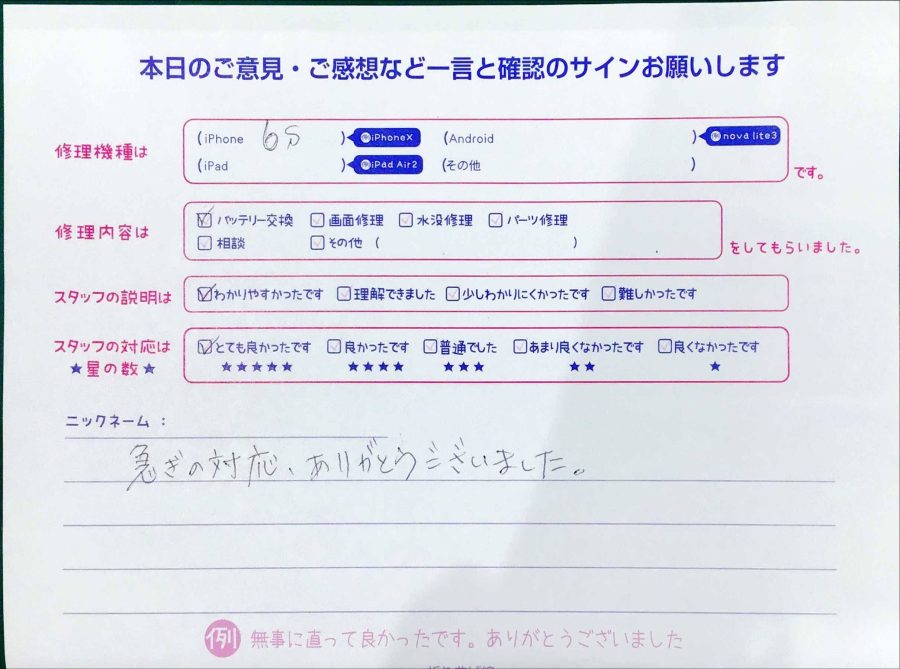 本日のご意見・ご感想など一言と確認のサインお願いします
修理機種は
(iPhone 6s ) 例iPhoneX (Android ) 例nova lite3
(iPad ) 例iPad Air2 (その他 ) です。
修理内容は
バッテリー交換 画面修理 水没修理 パーツ修理
相談 その他 ( ) をしてもらいました。
スタッフの説明は わかりやすかったです 理解できました 少しわかりにくかったです 難しかったです
スタッフの対応は とても良かったです 良かったです 普通でした あまり良くなかったです 良くなかったです
★星の数★ ★★★★★ ★★★★ ★★★ ★★ ★
ニックネーム：
急ぎの対応、ありがとうございました。
例 無事に直って良かったです。ありがとうございました